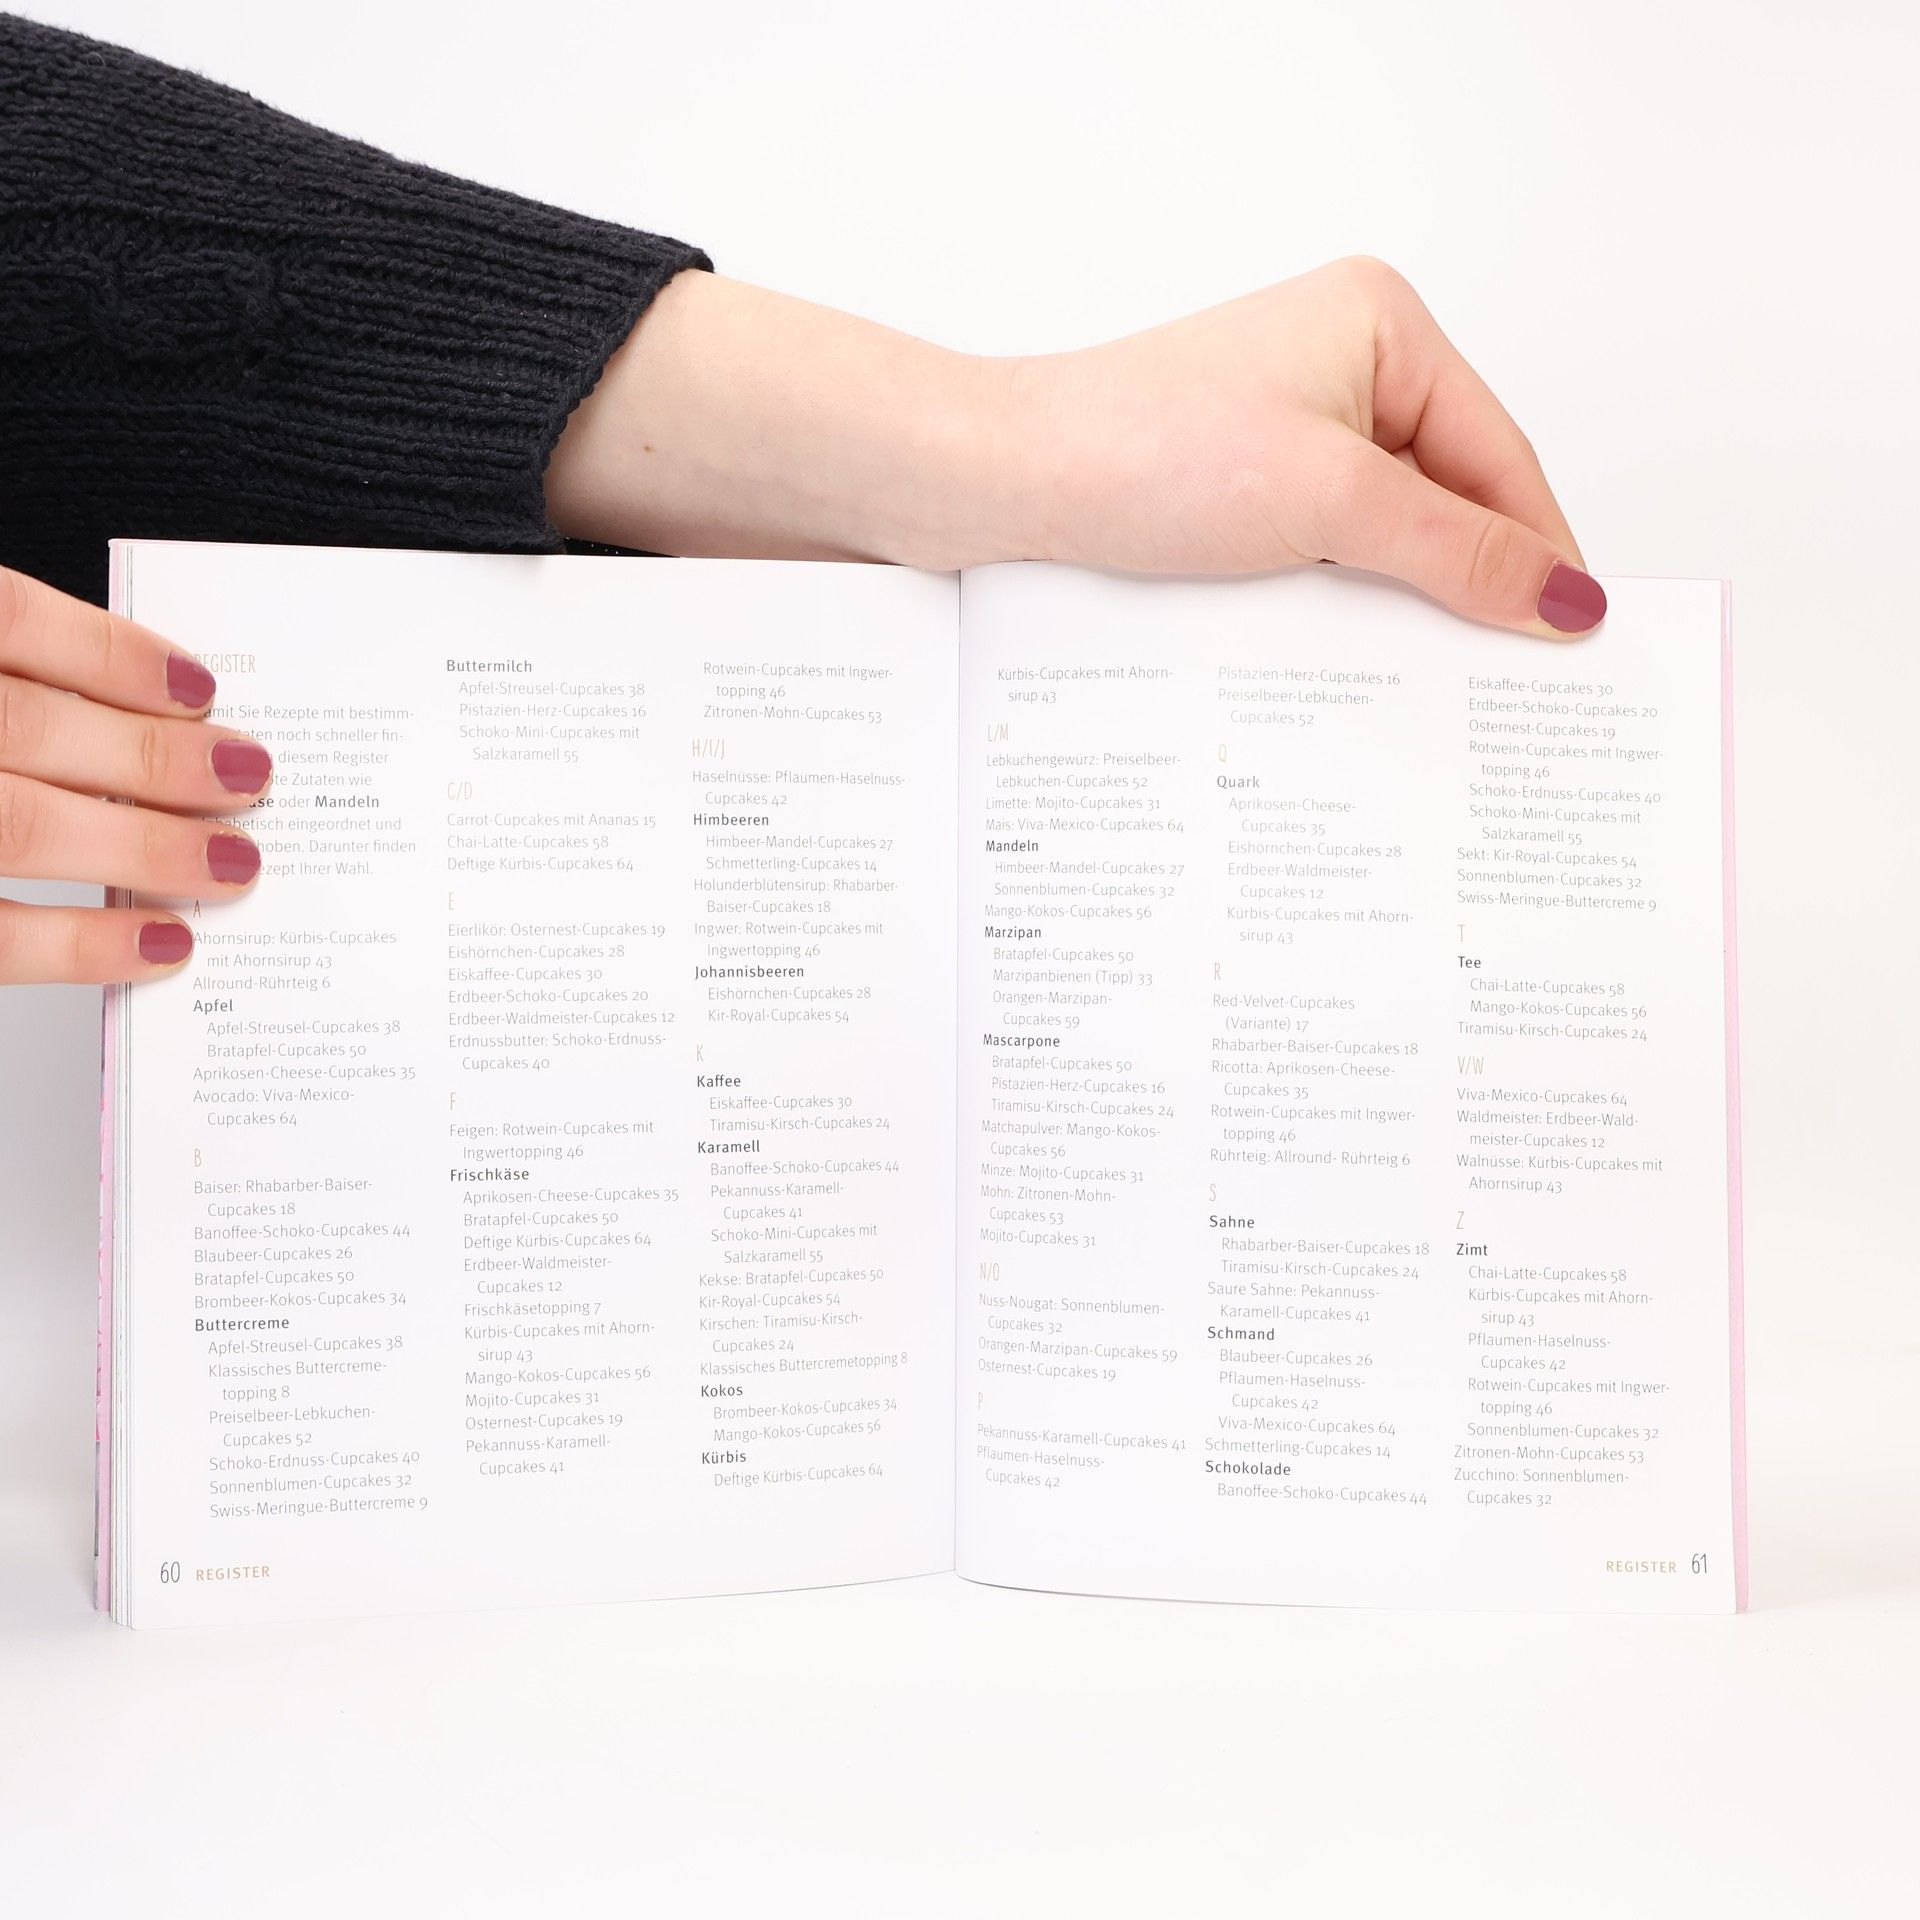 REGISTER
Damit Sie Rezepte mit bestimm-
noch schneller fin-
diesem Register
Zutaten wie
oder Mandeln
alphabetisch eingeordnet und
Darunter finden
Rezept Ihrer Wahl.
A
Ahornsirup: Kürbis-Cupcakes
mit Ahornsirup 43
Allround-Rührteig 6
Apfel
Apfel-Streusel-Cupcakes 38
Bratapfel-Cupcakes 50
Aprikosen-Cheese-Cupcakes 35
Avocado: Viva-Mexico-
Cupcakes 64
B
Baiser: Rhabarber-Baiser-
Cupcakes 18
Banoffee-Schoko-Cupcakes 44
Blaubeer-Cupcakes 26
Bratapfel-Cupcakes 50
Brombeer-Kokos-Cupcakes 34
Buttercreme
Apfel-Streusel-Cupcakes 38
Klassisches Buttercreme-
topping 8
Preiselbeer-Lebkuchen-
Cupcakes 52
Schoko-Erdnuss-Cupcakes 40
Sonnenblumen-Cupcakes 32
Swiss-Meringue-Buttercreme 9
Buttermilch
Apfel-Streusel-Cupcakes 38
Pistazien-Herz-Cupcakes 16
Schoko-Mini-Cupcakes mit
Salzkaramell 55
C/D
Carrot-Cupcakes mit Ananas 15
Chai-Latte-Cupcakes 58
Deftige Kürbis-Cupcakes 64
E
Eierlikör: Osternest-Cupcakes 19
Eishörnchen-Cupcakes 28
Eiskaffee-Cupcakes 30
Erdbeer-Schoko-Cupcakes 20
Erdbeer-Waldmeister-Cupcakes 12
Erdnussbutter: Schoko-Erdnuss-
Cupcakes 40
F
Feigen: Rotwein-Cupcakes mit
Ingwertopping 46
Frischkäse
Aprikosen-Cheese-Cupcakes 35
Bratapfel-Cupcakes 50
Deftige Kürbis-Cupcakes 64
Erdbeer-Waldmeister-
Cupcakes 12
Frischkäsetopping 7
Kürbis-Cupcakes mit Ahorn-
sirup 43
Mango-Kokos-Cupcakes 56
Mojito-Cupcakes 31
Osternest-Cupcakes 19
Pekannuss-Karamell-
Cupcakes 41
Rotwein-Cupcakes mit Ingwer-
topping 46
Zitronen-Mohn-Cupcakes 53
H/I/J
Haselnüsse: Pflaumen-Haselnuss-
Cupcakes 42
Himbeeren
Himbeer-Mandel-Cupcakes 27
Schmetterling-Cupcakes 14
Holunderblütensirup: Rhabarber-
Baiser-Cupcakes 18
Ingwer: Rotwein-Cupcakes mit
Ingwertopping 46
Johannisbeeren
Eishörnchen-Cupcakes 28
Kir-Royal-Cupcakes 54
K
Kaffee
Eiskaffee-Cupcakes 30
Tiramisu-Kirsch-Cupcakes 24
Karamell
Banoffee-Schoko-Cupcakes 44
Pekannuss-Karamell-
Cupcakes 41
Schoko-Mini-Cupcakes mit
Salzkaramell 55
Kekse: Bratapfel-Cupcakes 50
Kir-Royal-Cupcakes 54
Kirschen: Tiramisu-Kirsch-
Cupcakes 24
Klassisches Buttercremetopping 8
Kokos
Brombeer-Kokos-Cupcakes 34
Mango-Kokos-Cupcakes 56
Kürbis
Deftige Kürbis-Cupcakes 64
60 REGISTER
Kürbis-Cupcakes mit Ahorn-
sirup 43
L/M
Lebkuchengewürz: Preiselbeer-
Lebkuchen-Cupcakes 52
Limette: Mojito-Cupcakes 31
Mais: Viva-Mexico-Cupcakes 64
Mandeln
Himbeer-Mandel-Cupcakes 27
Sonnenblumen-Cupcakes 32
Mango-Kokos-Cupcakes 56
Marzipan
Bratapfel-Cupcakes 50
Marzipanbienen (Tipp) 33
Orangen-Marzipan-
Cupcakes 59
Mascarpone
Bratapfel-Cupcakes 50
Pistazien-Herz-Cupcakes 16
Tiramisu-Kirsch-Cupcakes 24
Matchapulver: Mango-Kokos-
Cupcakes 56
Minze: Mojito-Cupcakes 31
Mohn: Zitronen-Mohn-
Cupcakes 53
Mojito-Cupcakes 31
N/O
Nuss-Nougat: Sonnenblumen-
Cupcakes 32
Orangen-Marzipan-Cupcakes 59
Osternest-Cupcakes 19
P
Pekannuss-Karamell-Cupcakes 41
Pflaumen-Haselnuss-
Cupcakes 42
Pistazien-Herz-Cupcakes 16
Preiselbeer-Lebkuchen-
Cupcakes 52
Q
Quark
Aprikosen-Cheese-
Cupcakes 35
Eishörnchen-Cupcakes 28
Erdbeer-Waldmeister-
Cupcakes 12
Kürbis-Cupcakes mit Ahorn-
sirup 43
R
Red-Velvet-Cupcakes
(Variante) 17
Rhabarber-Baiser-Cupcakes 18
Ricotta: Aprikosen-Cheese-
Cupcakes 35
Rotwein-Cupcakes mit Ingwer-
topping 46
Rührteig: Allround- Rührteig 6
S
Sahne
Rhabarber-Baiser-Cupcakes 18
Tiramisu-Kirsch-Cupcakes 24
Saure Sahne: Pekannuss-
Karamell-Cupcakes 41
Schmand
Blaubeer-Cupcakes 26
Pflaumen-Haselnuss-
Cupcakes 42
Viva-Mexico-Cupcakes 64
Schmetterling-Cupcakes 14
Schokolade
Banoffee-Schoko-Cupcakes 44
Eiskaffee-Cupcakes 30
Erdbeer-Schoko-Cupcakes 20
Osternest-Cupcakes 19
Rotwein-Cupcakes mit Ingwer-
topping 46
Schoko-Erdnuss-Cupcakes 40
Schoko-Mini-Cupcakes mit
Salzkaramell 55
Sekt: Kir-Royal-Cupcakes 54
Sonnenblumen-Cupcakes 32
Swiss-Meringue-Buttercreme 9
T
Tee
Chai-Latte-Cupcakes 58
Mango-Kokos-Cupcakes 56
Tiramisu-Kirsch-Cupcakes 24
V/W
Viva-Mexico-Cupcakes 64
Waldmeister: Erdbeer-Wald-
meister-Cupcakes 12
Walnüsse: Kürbis-Cupcakes mit
Ahornsirup 43
Z
Zimt
Chai-Latte-Cupcakes 58
Kürbis-Cupcakes mit Ahorn-
sirup 43
Pflaumen-Haselnuss-
Cupcakes 42
Rotwein-Cupcakes mit Ingwer-
topping 46
Sonnenblumen-Cupcakes 32
Zitronen-Mohn-Cupcakes 53
Zucchino: Sonnenblumen-
Cupcakes 32
REGISTER 61